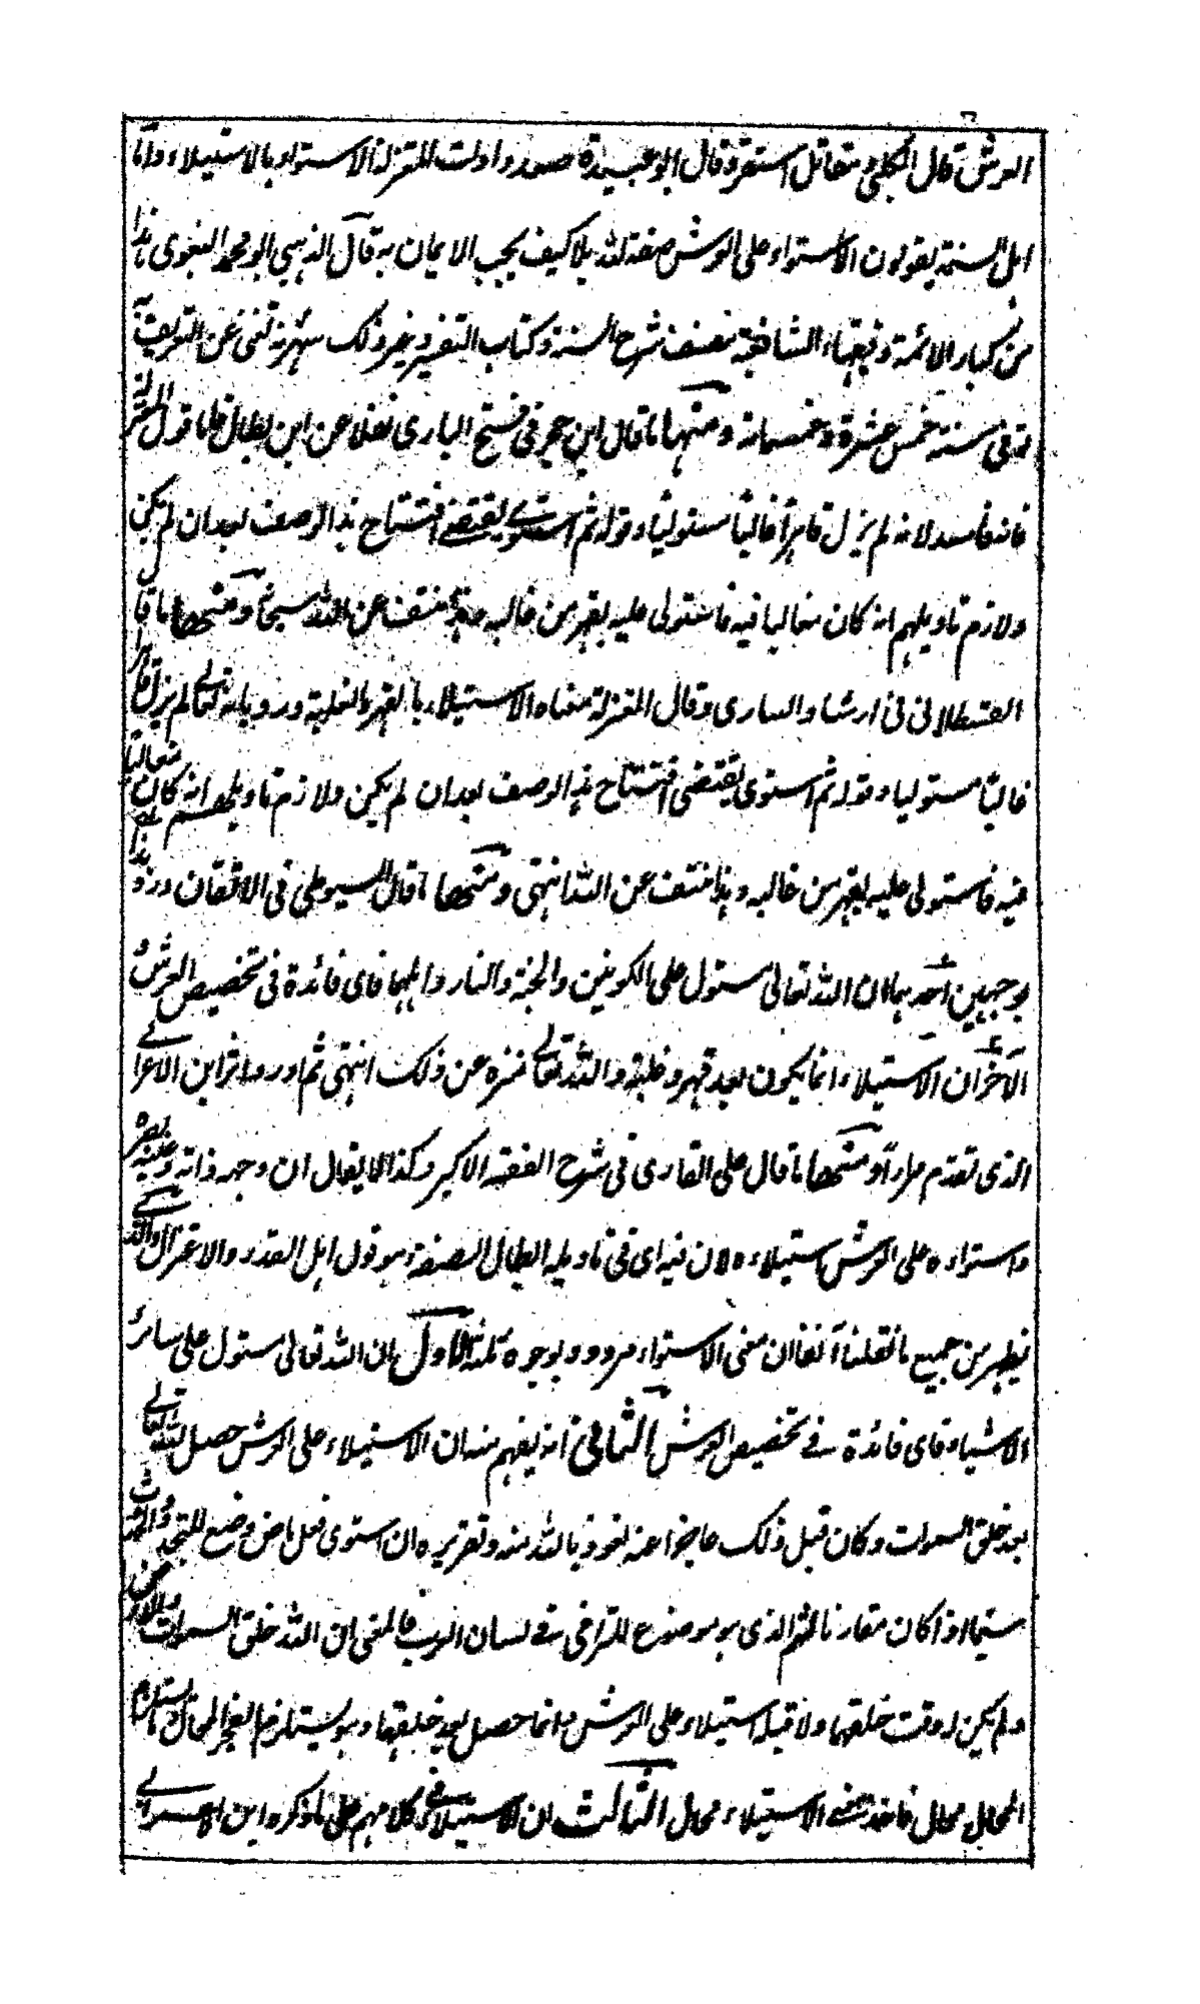 العرش قال الكلبي ومقاتل استقر وقال ابو عبيدة صعد واولت المعتزلة الاستواء بالاستيلاء واما
اهل السنة يقولون الاستواء على العرش صفة لله بلا كيف يجب الايمان به قال الذهبي ابو محمد البغوى هذا
من كبار الائمة وفقهاء الشافعية مصنف شرح السنة وكتاب التفسير وغير ذلك شهرته تغنى عن التعريف
توفى سنة خمس عشرة وخمسمائة ومنها ما قال ابن حجر فى فتح البارى نقلا عن ابن بطال فاما قول المعتزلة
فانه فاسد لانه لم يزل قاهرا غالبا مستوليا وقوله ثم استوى يقتضى افتتاح هذا الوصف بعد ان لم يكن
ولازم تاويلهم انه كان مغالبا فيه فاستولى عليه بقهر من غالبه وهذا منتف عن الله سبحانه ومنها ما قال
القسطلانى فى ارشاد السارى وقال المعتزلة معناه الاستيلاء بالقهر والغلبة ورد بانه تعالى لم يزل قاهرا
غالبا مستوليا وقوله ثم استوى يقتضى افتتاح هذا الوصف بعد ان لم يكن ولازم تاويلهم انه كان مغالبا
فيه فاستولى عليه بقهر من غالبه وهذا منتف عن الله انتهى ومنها ما قال السيوطى فى الاتقان ورد هذا
بوجهين احدهما ان الله تعالى مستول على الكونين والجنة والنار واهلهما فاى فائدة فى تخصيص العرش و
الآخر ان الاستيلاء انما يكون بعد قهر وغلبة والله تعالى منزه عن ذلك انتهى ثم اورد اثر ابن الاعرابى
الذى تقدم مرارا ومنها ما قال على القارى فى شرح الفقه الاكبر وكذا لا يقال ان وجهه ذاته وعينه بصره
واستواءه على العرش استيلاءه لان فيه اى فى تاويله ابطال الصفة وهو قول اهل القدر والاعتزال والذى
يظهر من جميع ما نقلنا آنفا ان معنى الاستواء مردود بوجوه ثلثة الاول ان الله تعالى مستول على سائر
الاشياء فاى فائدة فى تخصيص العرش الثانى انه يفهم منه ان الاستيلاء على العرش حصل لله تعالى
بعد خلق السموات وكان قبل ذلك عاجزا عنه نعوذ بالله منه وتقريره ان استوى فعل ماض وضع للتجدد والحدوث
سيما اذا كان مقارنا لثم الذى هو موضوع للتراخى فى لسان العرب فالمعنى ان الله خلق السموات والارض
ولم يكن له وقت خلقها ولا قبله استيلاء على العرش وانما حصل بعد خلقها وهو يستلزم العجز المحال وما يستلزم
المحال محال فاخذ معنى الاستيلاء محال الثالث ان الاستيلاء فى كلامهم على ما ذكره ابن الاعرابى